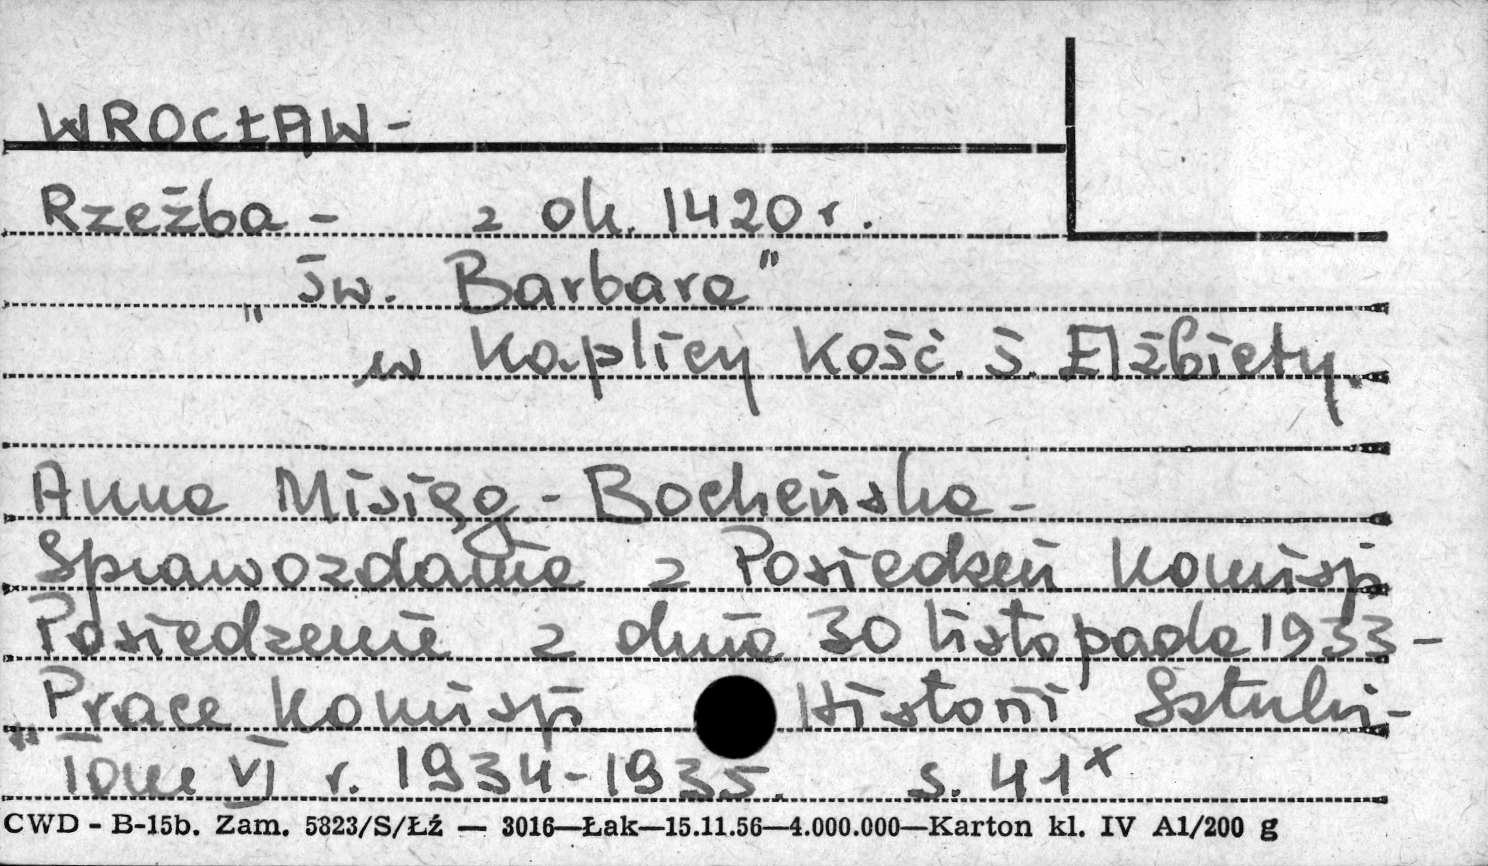 WROCŁAW -
Rzeźba - z ok. 1420 r.
"Św. Barbara"
w Kaplicy Kość. Ś. Elżbiety.
Anna Misiąg - Bocheńska -
Sprawozdanie z Posiedzeń Komisji
Posiedzenie z dnia 30 listopada 1933 -
"Prace Komisji Historii Sztuki -
Tom VI r. 1934-1935. s. 41x
CWD - B-15b. Zam. 5823/S/Łź — 3016—Łak—15.11.56—4.000.000—Karton kl. IV A1/200 g